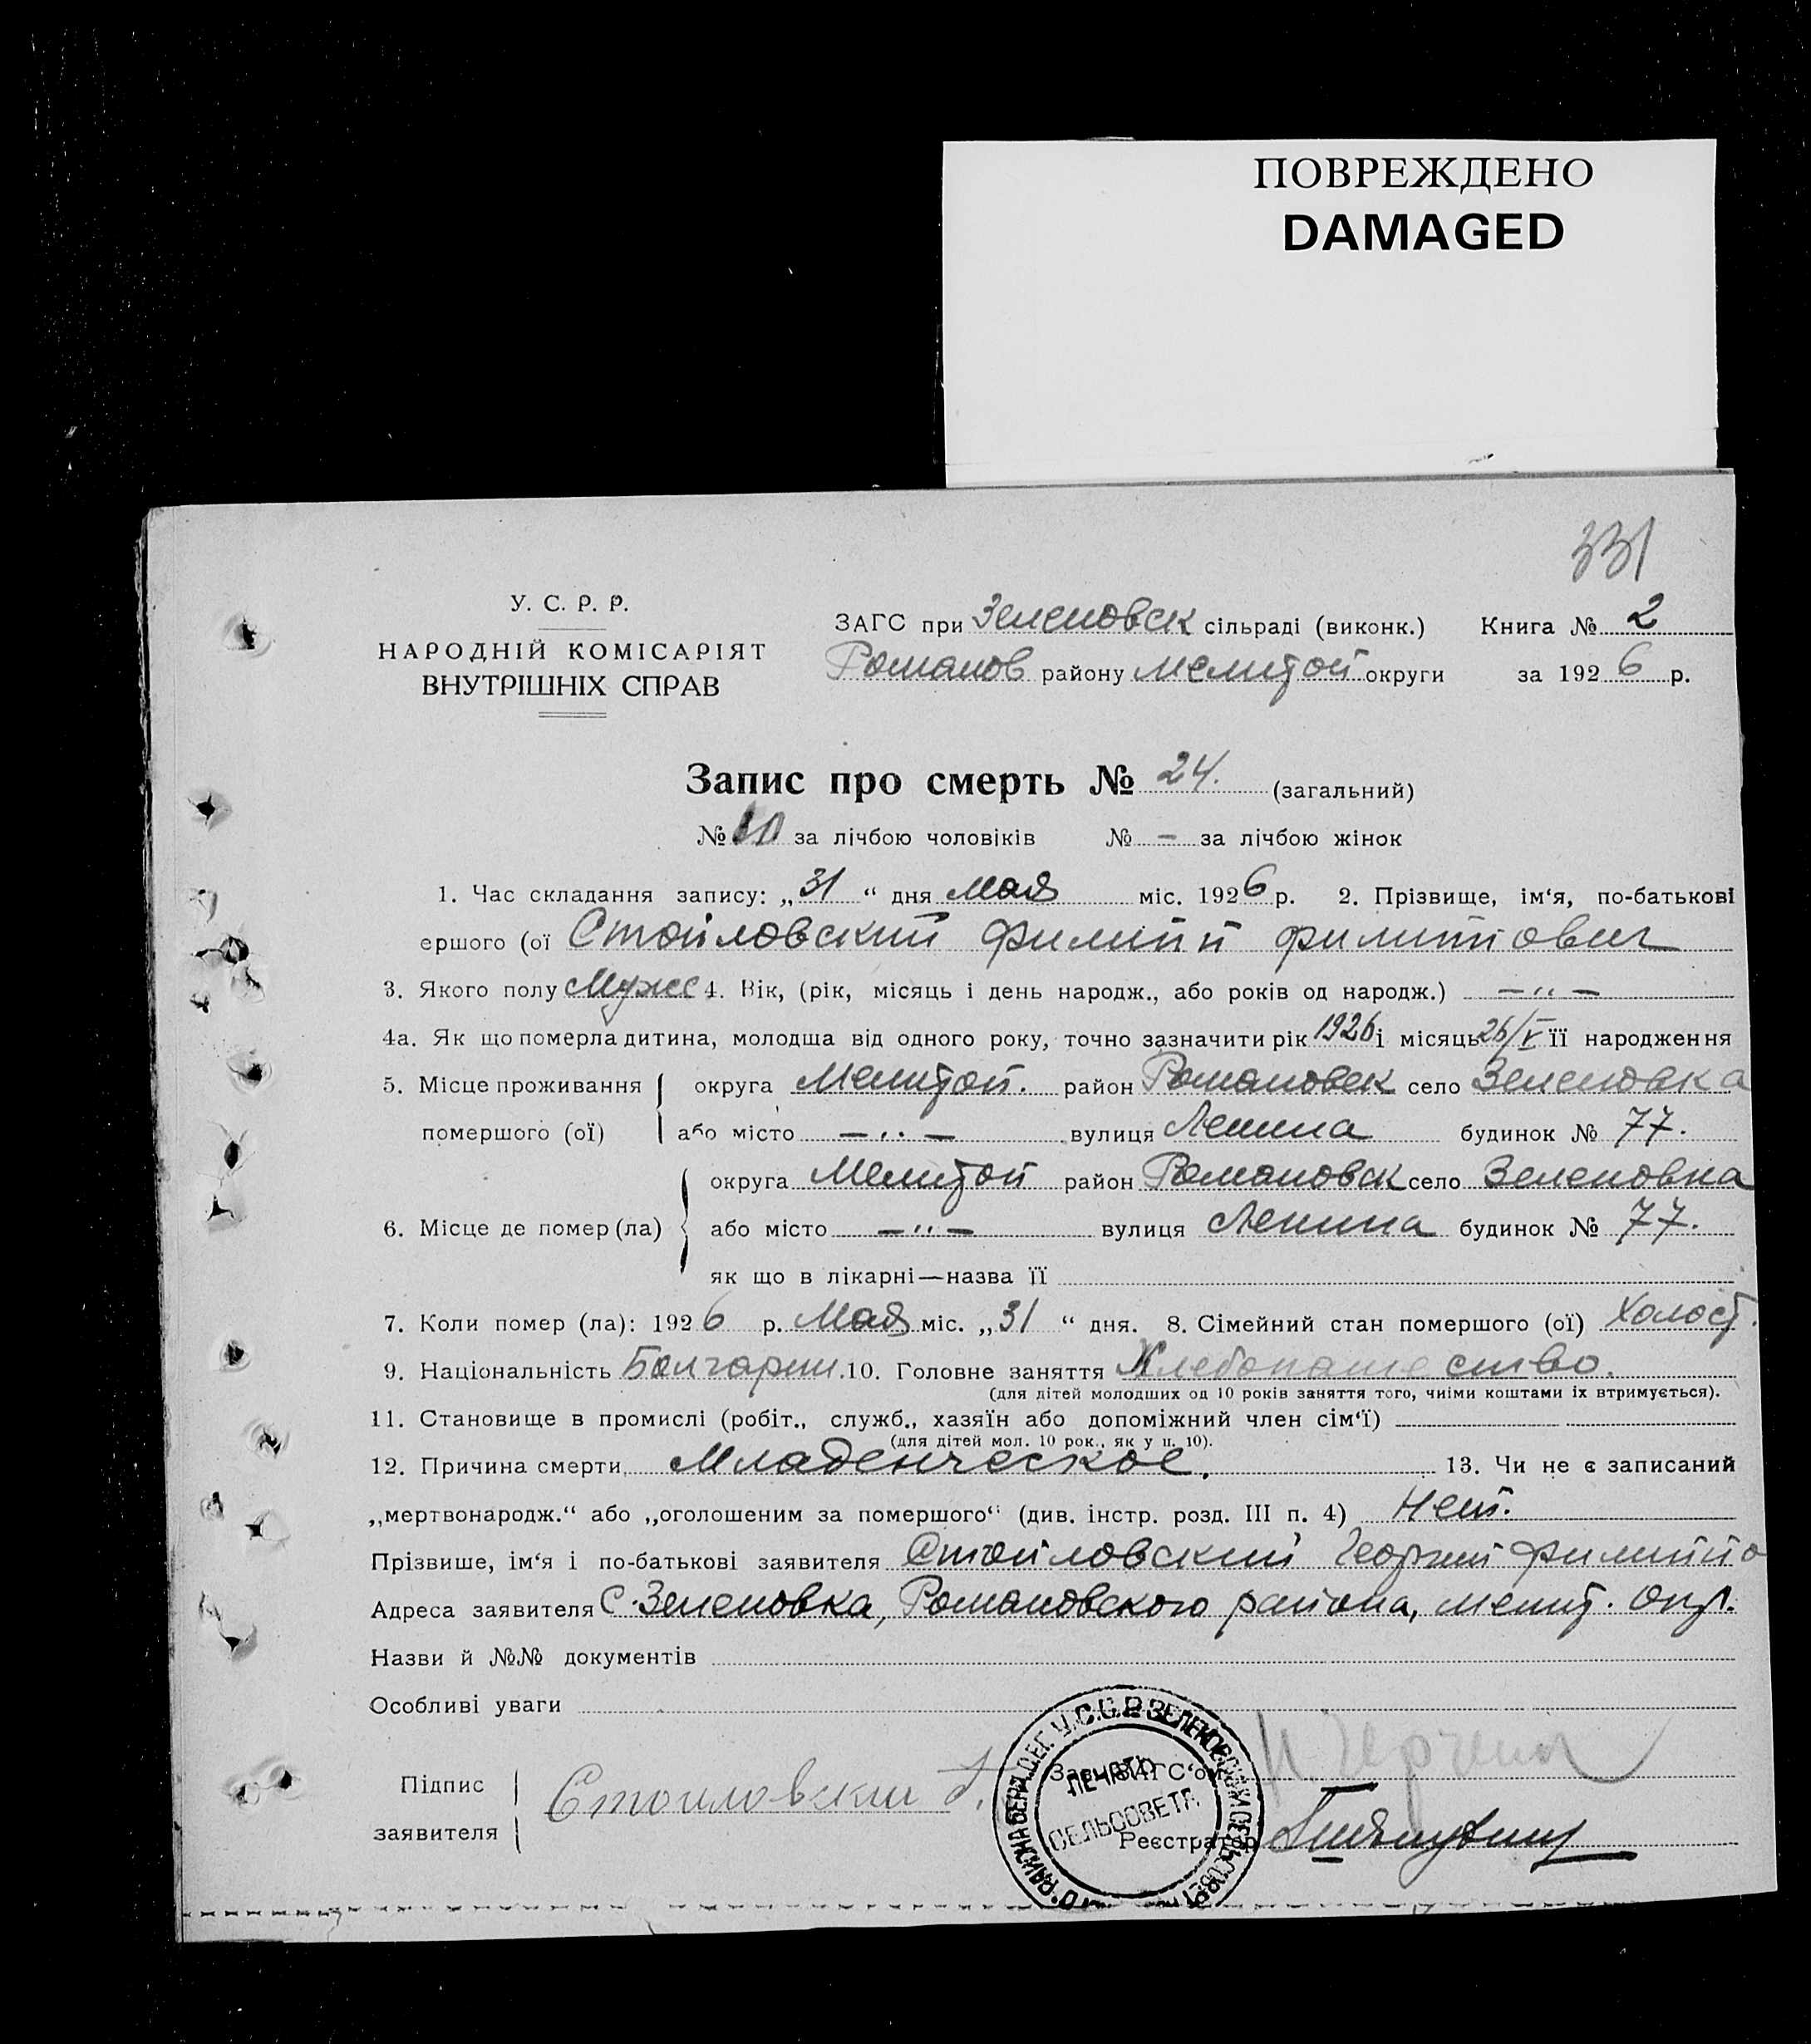 ПОВРЕЖДЕНО
DAMAGED
331
У. С. Р. Р.
НАРОДНІЙ КОМІСАРІЯТ
ВНУТРІШНІХ СПРАВ
ЗАГС при Зеленовск сільраді (виконк.) Книга № 2
Романов району Мелитоп округи за 1926 р.
Запис про смерть № 24. (загальний)
№ 10 за лічбою чоловіків № — за лічбою жінок
1. Час складання запису: „31“ дня Мая міс. 1926 р. 2. Прізвище, ім‘я, по-батькові
ершого (ої Стоиловский Филипп Филиппович
3. Якого полу Мужс 4. Вік, (рік, місяць і день народж., або років од народж.) — ·· —
4а. Як що померла дитина, молодша від одного року, точно зазначити рік 1926 і місяць 26/V її народження
5. Місце проживання округа Мелитоп. район Романовск село Зеленовка
помершого (ої) або місто — ·· — вулиця Ленина будинок № 77.
округа Мелитоп район Романовск село Зеленовка
6. Місце де помер (ла) або місто — ·· — вулиця Ленина будинок № 77.
як що в лікарні—назва її
7. Коли помер (ла): 1926 р. Мая міс. „31“ дня. 8. Сімейний стан помершого (ої) Холост.
9. Національність Болгарин. 10. Головне заняття Хлебопашество.
(для дітей молодших од 10 років заняття того, чиїми коштами їх втримується).
11. Становище в промислі (робіт., служб., хазяїн або допоміжний член сім‘ї)
(для дітей мол. 10 рок., як у п. 10).
12. Причина смерти Младенческое. 13. Чи не є записаний
„мертвонародж.“ або „оголошеним за помершого“ (див. інстр. розд. III п. 4) Нет.
Прізвише, ім‘я і по-батькові заявителя Стоиловский Георгий Филиппо
Адреса заявителя С. Зеленовка, Романовского района, Мелит. окр.
Назви й №№ документів
Особливі уваги
Підпис
заявителя Стоиловски
Реєстратор
У.С.С.Р. ЗЕЛЕНОВСКИЙ СЕЛЬСОВЕТ
ПЕЧАТЬ
СЕЛЬСОВЕТА